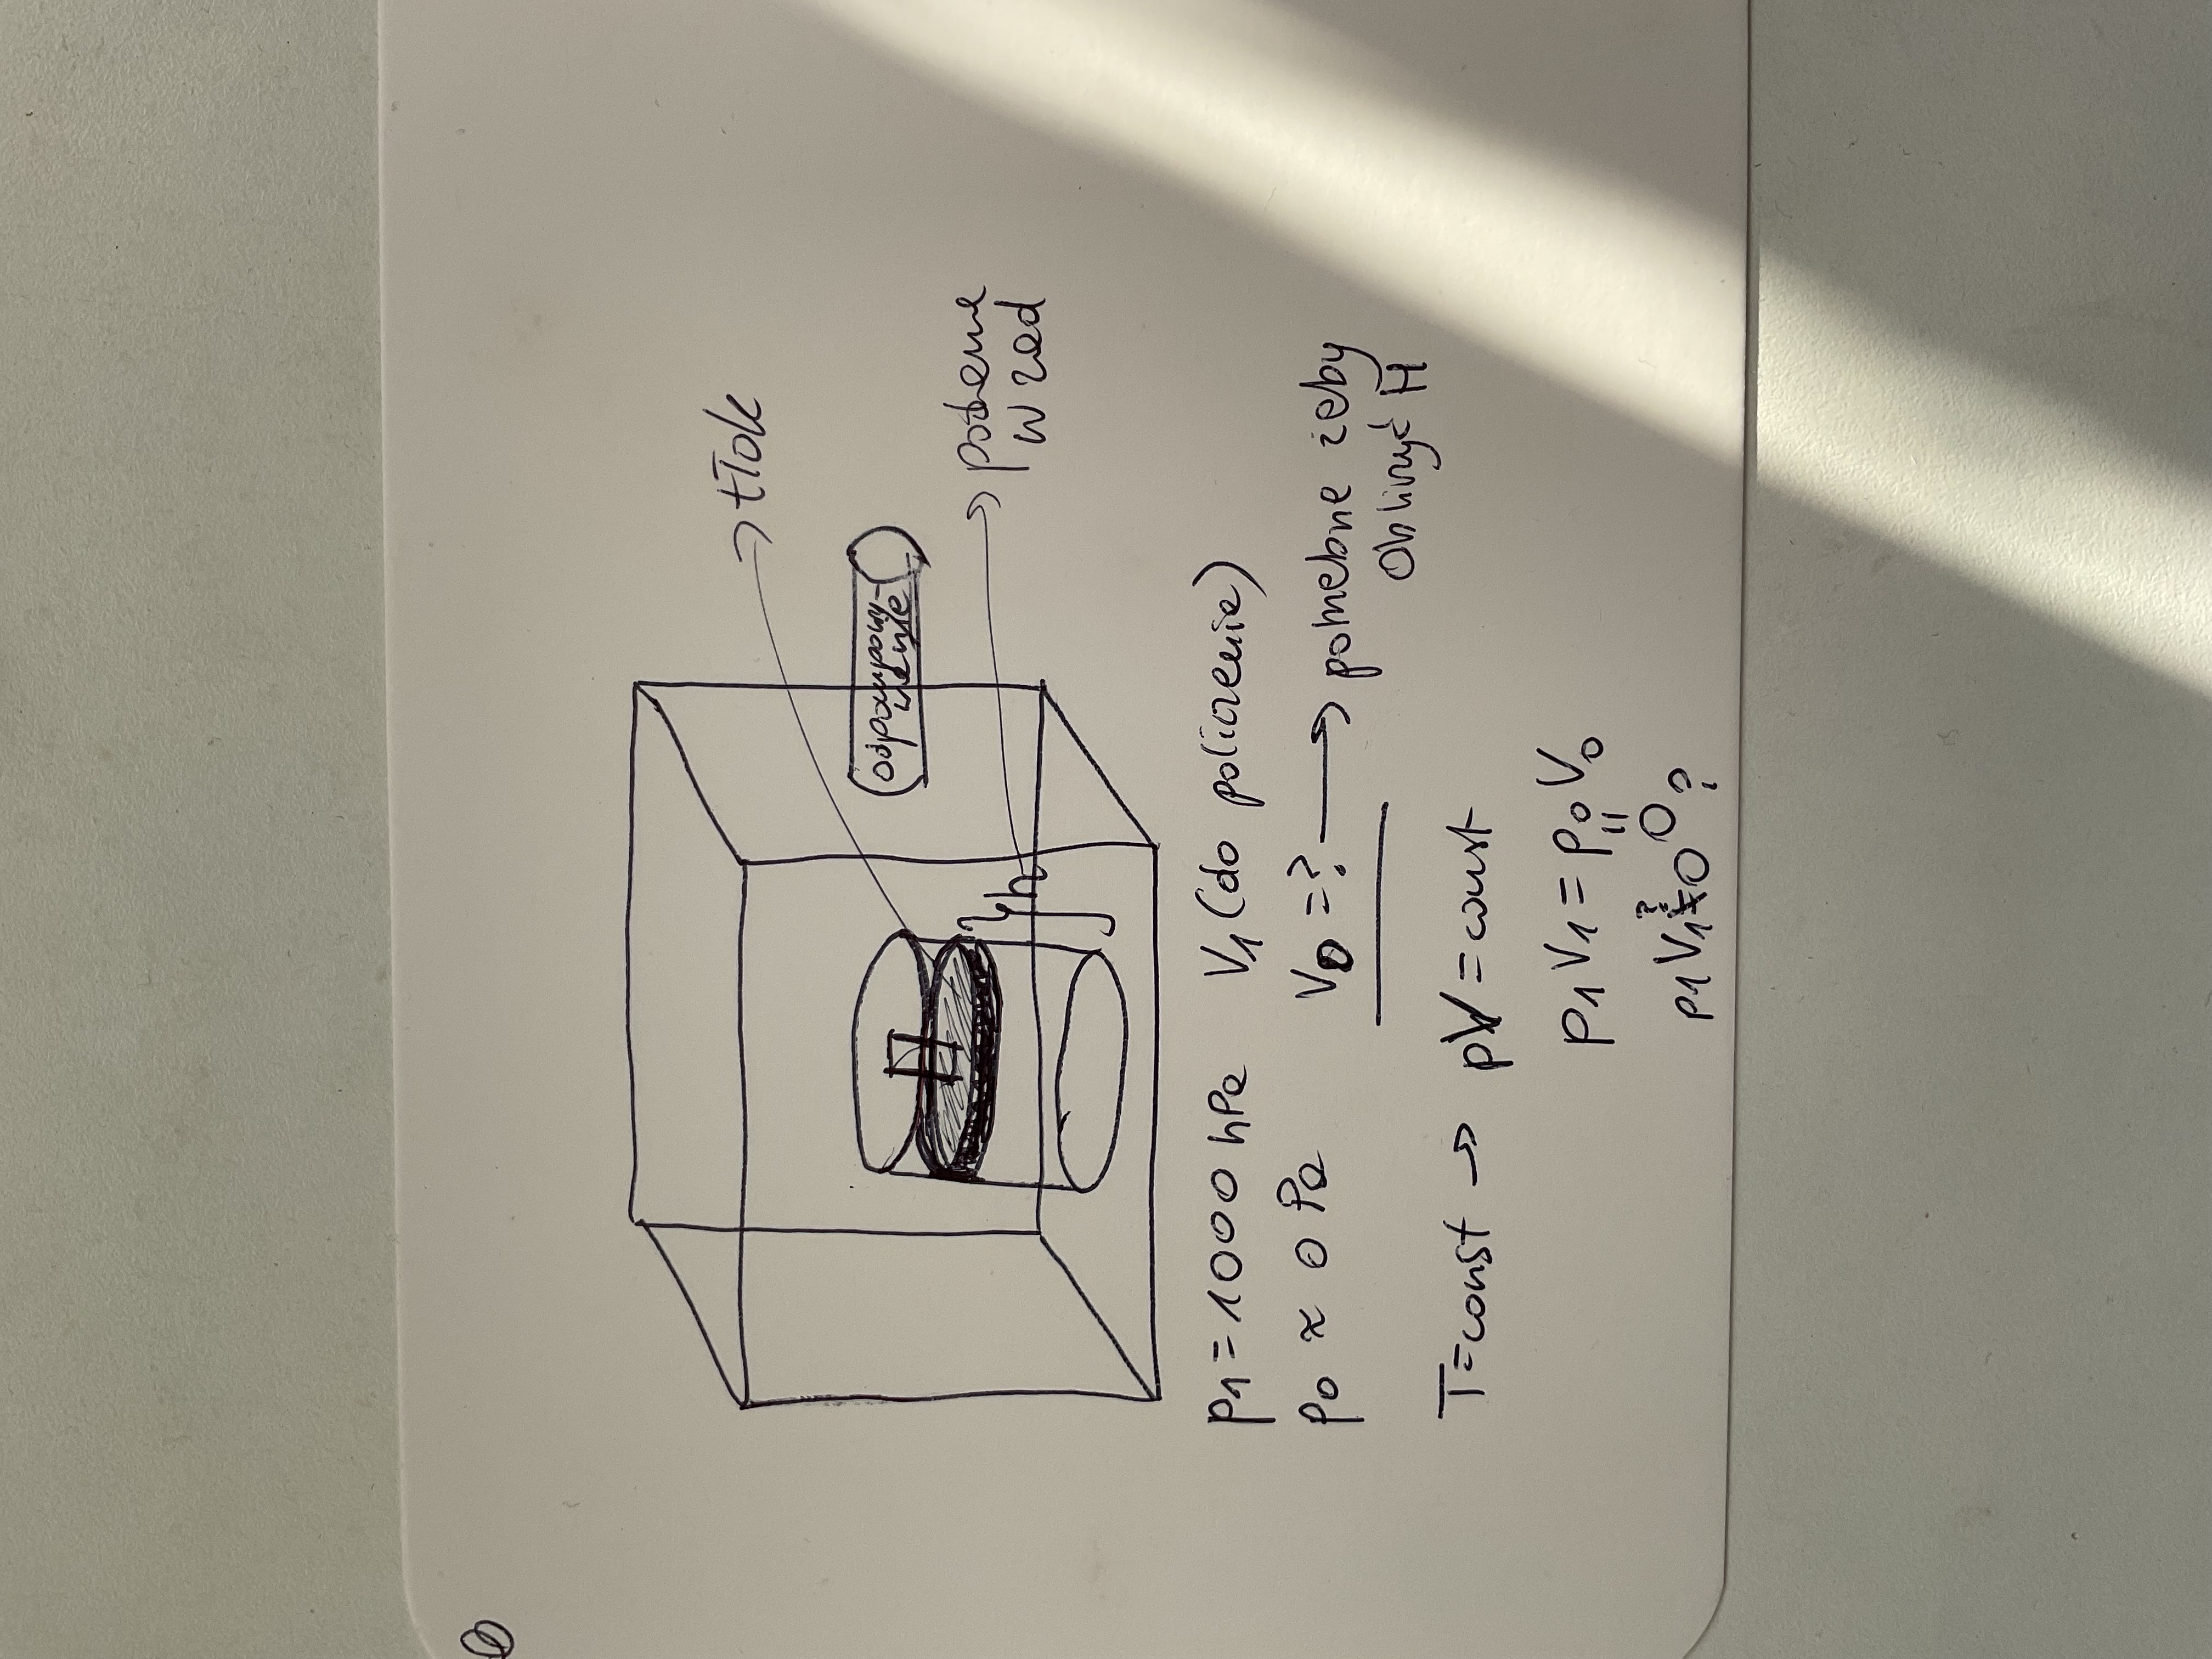 → tłok
odpompowy-
wanie
p1 = 1000 hPa V1 (do policzenia)
p0 ≈ 0 Pa V0 = ? → potrzebne żeby
obliczyć H
T=const → pV = const
p1 V1 = p0 V0